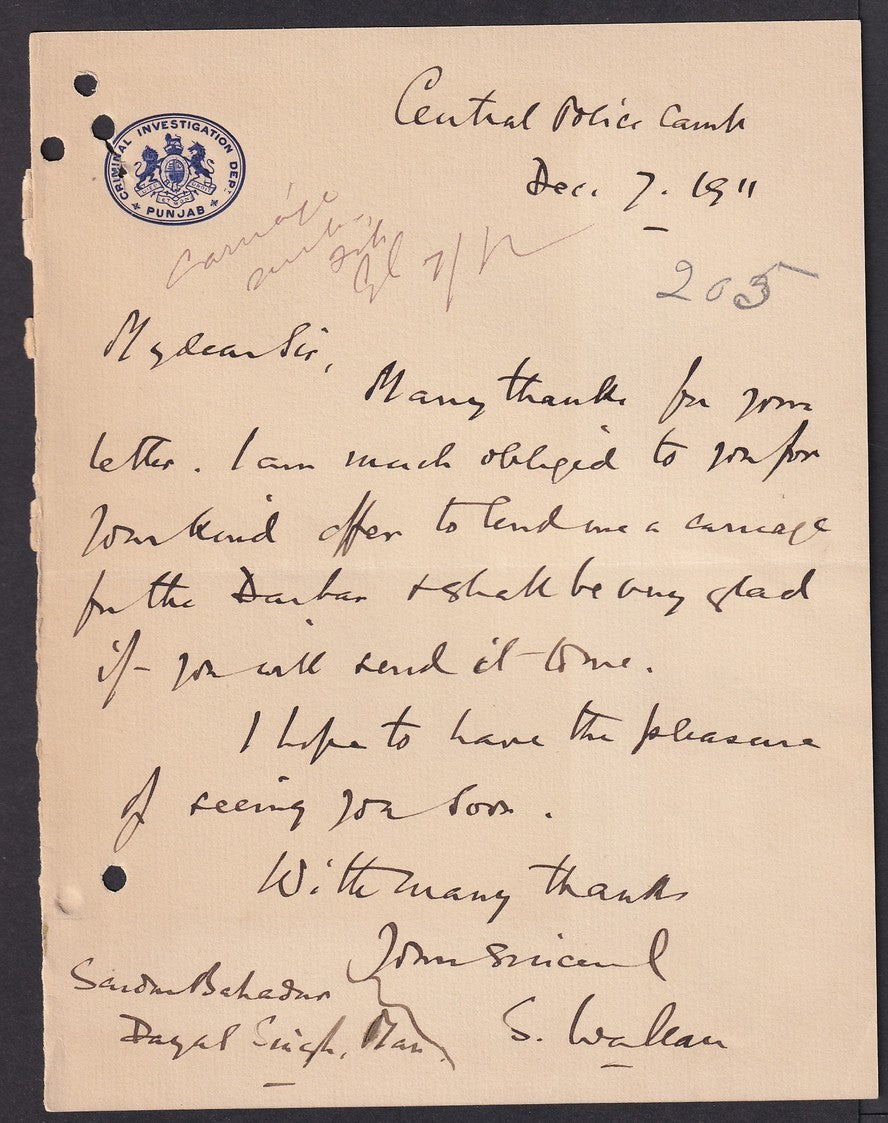 CRIMINAL INVESTIGATION DEPT
PUNJAB
Central Police Camp
Dec. 7. 1911
Carriage
7/12
205
My dear Sir,
Many thanks for your
letter. I am much obliged to you for
your kind offer to lend me a carriage
for the Darbar & shall be very glad
if you will send it to me.
I hope to have the pleasure
of seeing you soon.
With many thanks
Yours sincerely
S. Wallace
Sardar Bahadur
Dayal Singh, Man